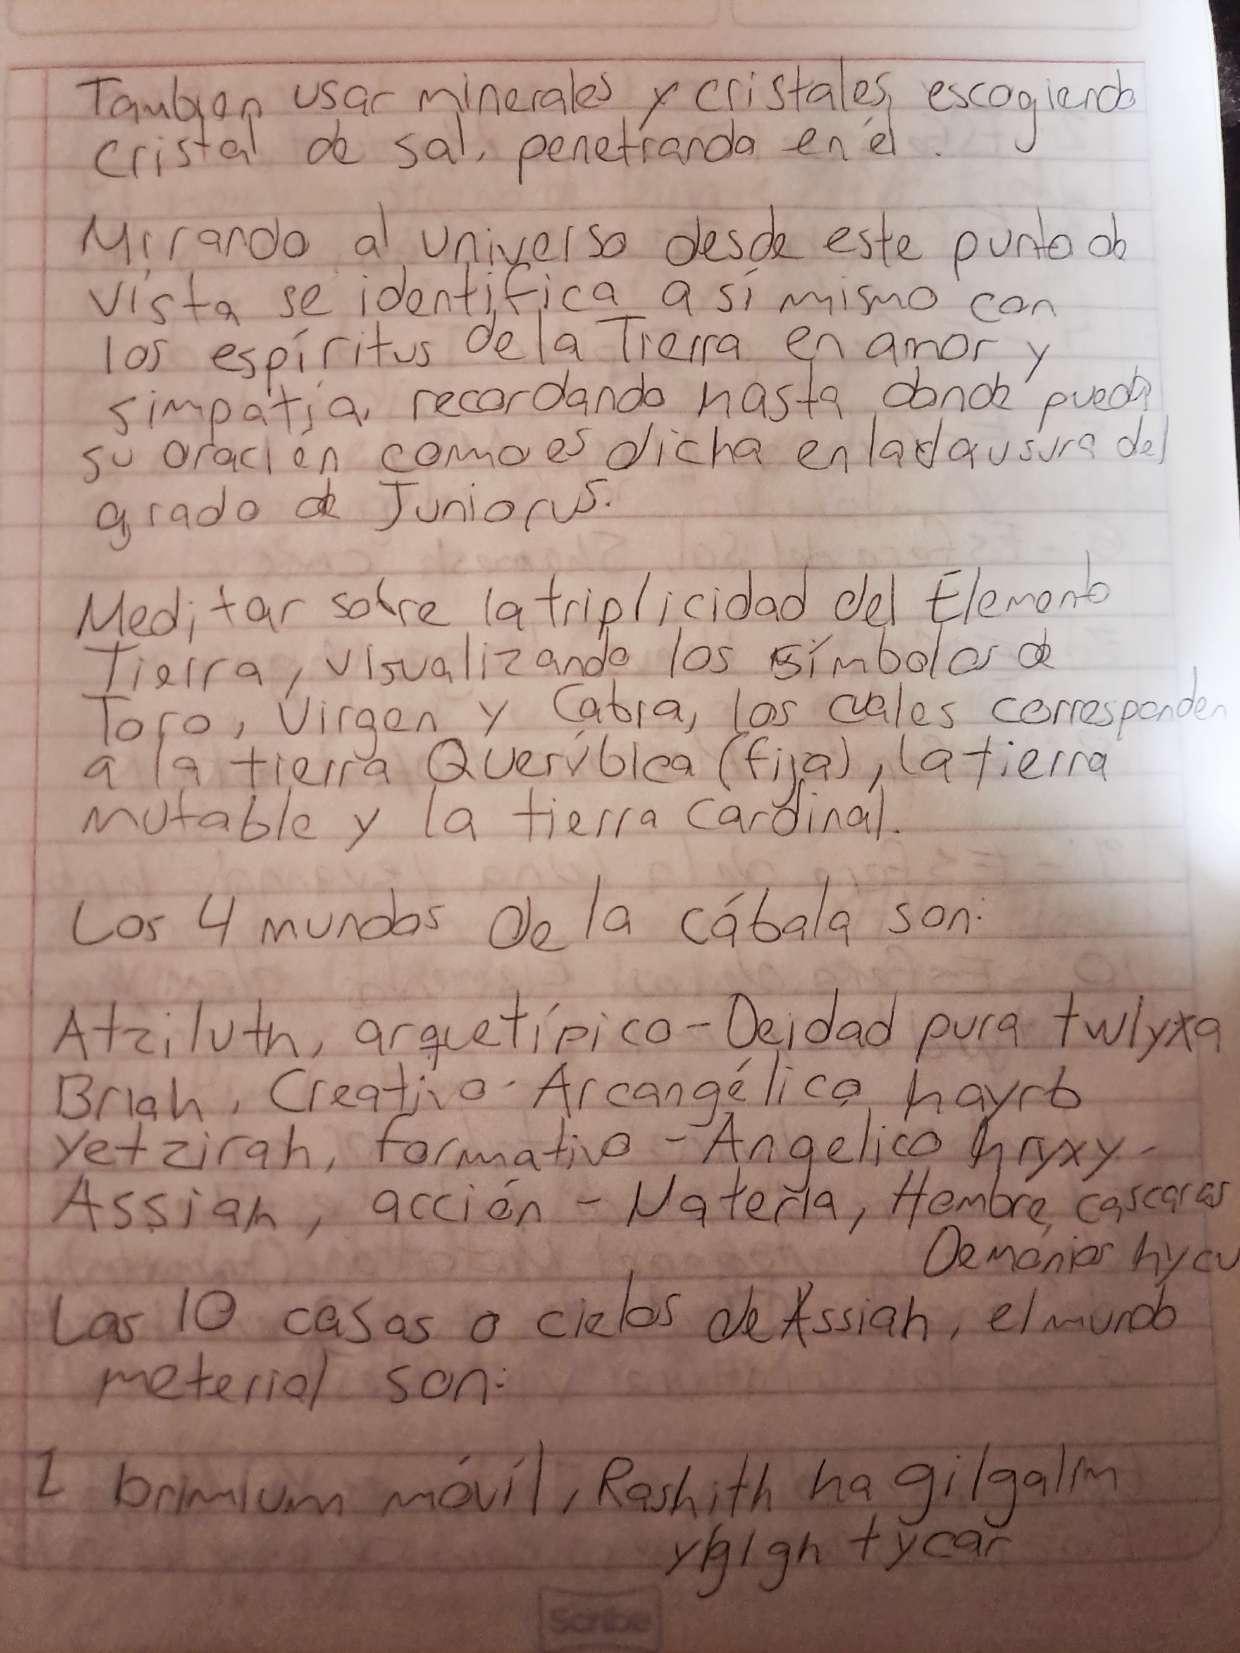 Tambien usar minerales y cristales, escogiendo
cristal de sal, penetranda en él.
Mirando al universo desde este punto de
vista se identifica a sí mismo con
los espíritus de la Tierra en amor y
simpatía, recordando hasta donde pueda
su oración como es dicha en la clausura del
grado de Juniorus.
Meditar sobre la triplicidad del Elemento
Tierra, visualizando los símbolos de
Toro, Virgen y Cabra, los cuales corresponden
a la tierra Querúbica (fija), la tierra
mutable y la tierra cardinal.
Los 4 mundos de la cábala son:
Atziluth, arquetípico - Deidad pura twlyxa
Briah, Creativo - Arcangélico hayrb
Yetzirah, formativo - Angelico hryxy -
Assiah, acción - Materia, Hombre, cascaras
Demonios hycu
Las 10 casas o cielos de Assiah, el mundo
meterial son:
1 brimium móvil, Rashith ha gilgalim
tycar
Scribe